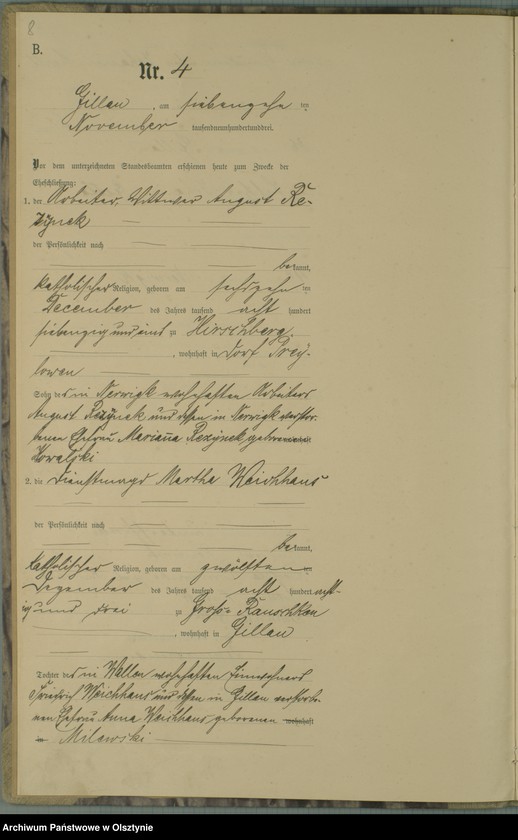 8
B.
Nr. 4
Gillau, am siebenzehn ten
November tausendneunhundertunddrei.
Vor dem unterzeichneten Standesbeamten erschienen heute zum Zwecke der
Eheschließung:
1. der Arbeiter, Wittwer August Re-
zynek
der Persönlichkeit nach
bekannt,
katholischer Religion, geboren am sechszehn ten
December des Jahres tausend acht hundert
siebenzig und eins zu Hirschberg
, wohnhaft in Dorf Prey-
lowen
Sohn des in Nerwigk wohnhaften Arbeiters
August Rezynek und dessen in Nerwigk verstor-
benen Ehefrau Marianna Rezynek geborenen
Kowalski
2. die Dienstmagd Martha Weichhaus
der Persönlichkeit nach
bekannt,
katholischer Religion, geboren am zwölften
Dezember des Jahres tausend acht hundert acht-
zig und drei zu Groß-Rauschken
, wohnhaft in Gillau
Tochter des in Wallen wohnhaften Einwohners
Friedrich Weichhaus und dessen in Gillau verstorbe-
nen Ehefrau Anna Weichhaus geborenen wohnhaft
in Milewski
Archiwum Państwowe w Olsztynie